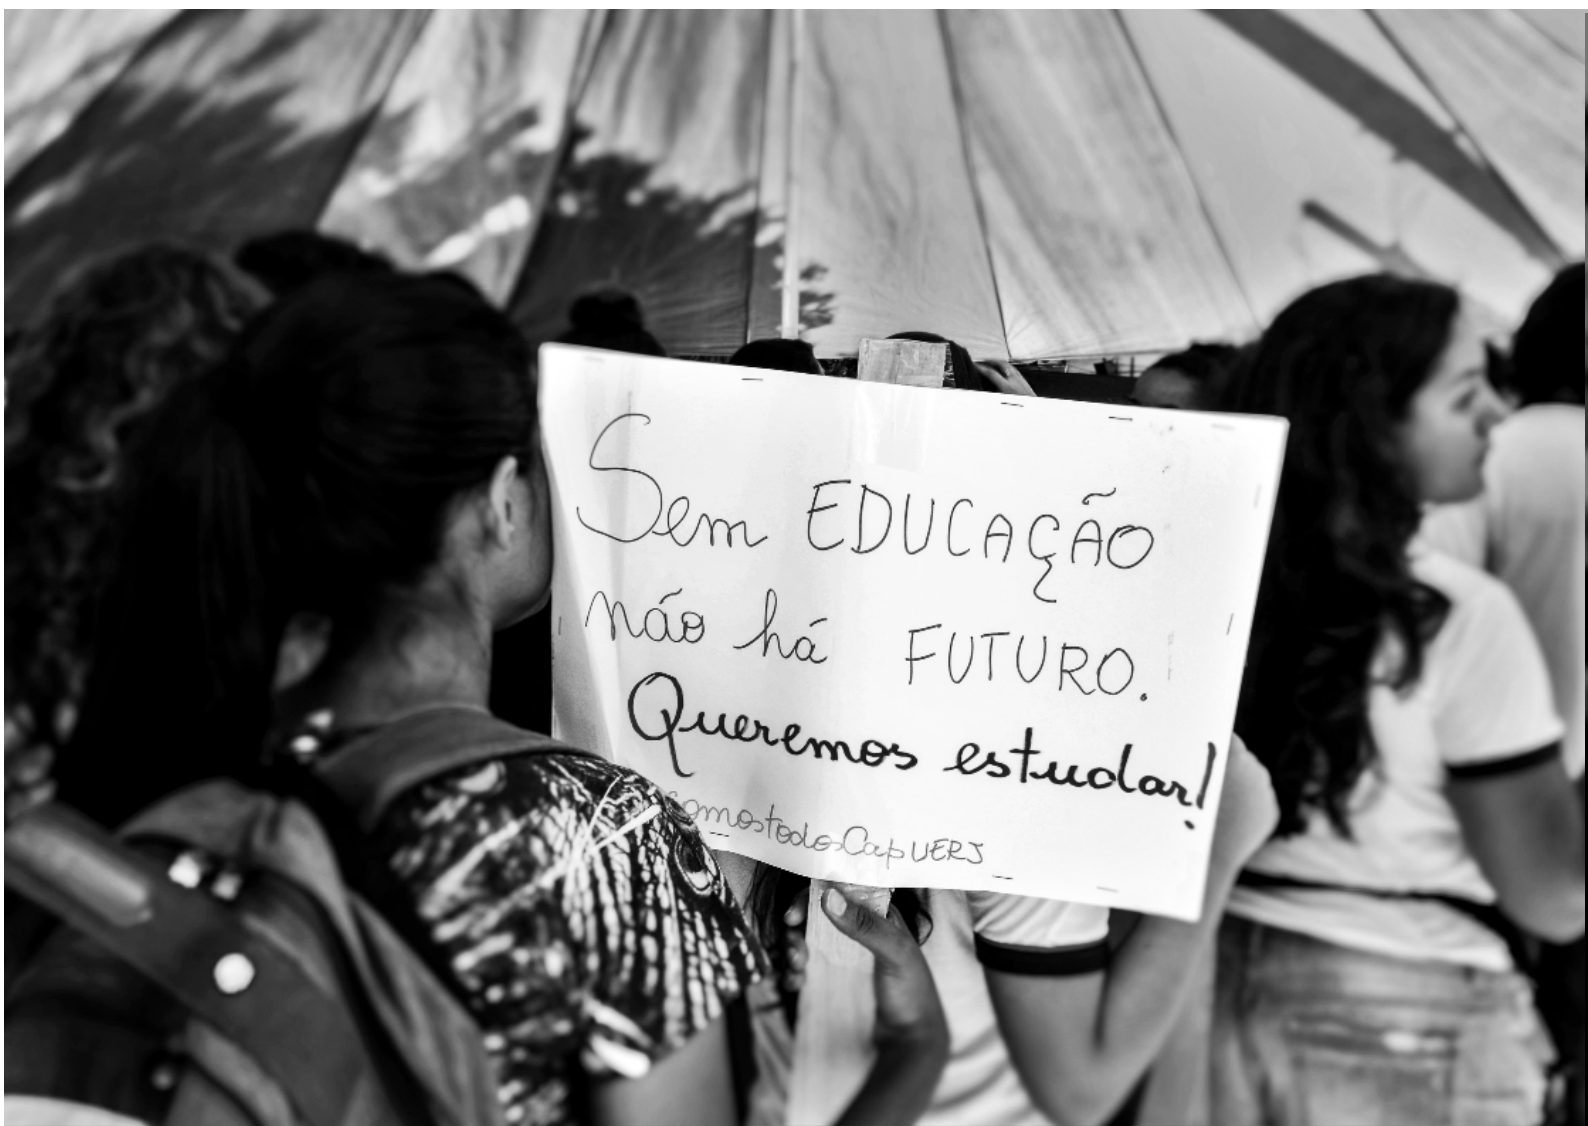 Sem EDUCAÇÃO
não há FUTURO.
Queremos estudar!
somostodosCapUERJ